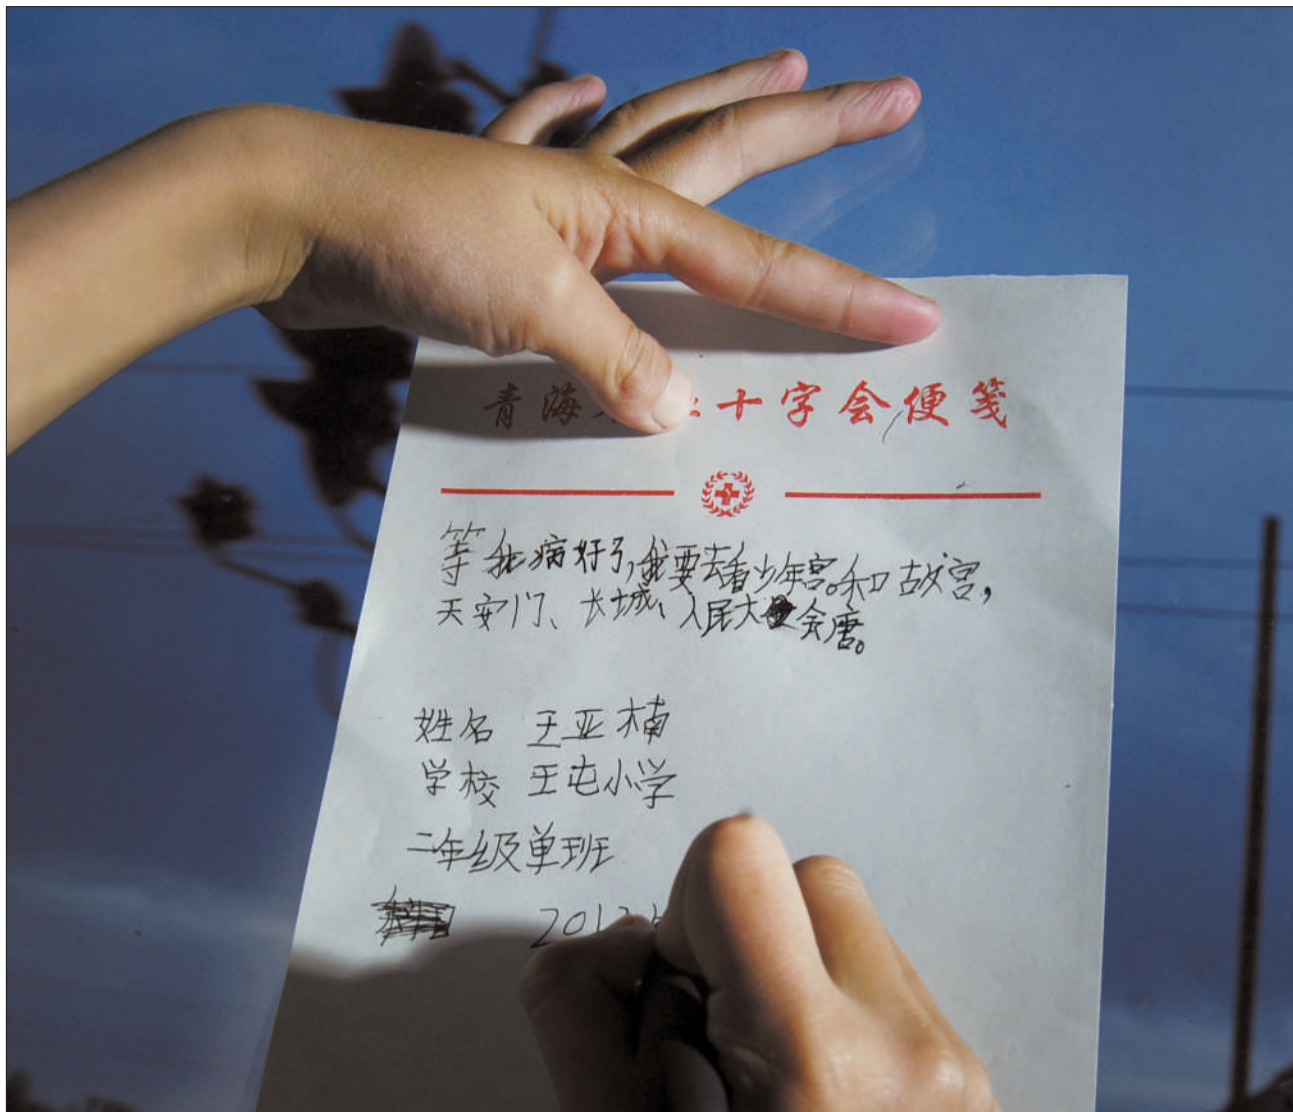 青海 十字会便笺
等我病好了,我要去看少年宫。和故宫,
天安门、长城、人民大会唐。
姓名 王亚楠
学校 王屯小学
二年级单班
201